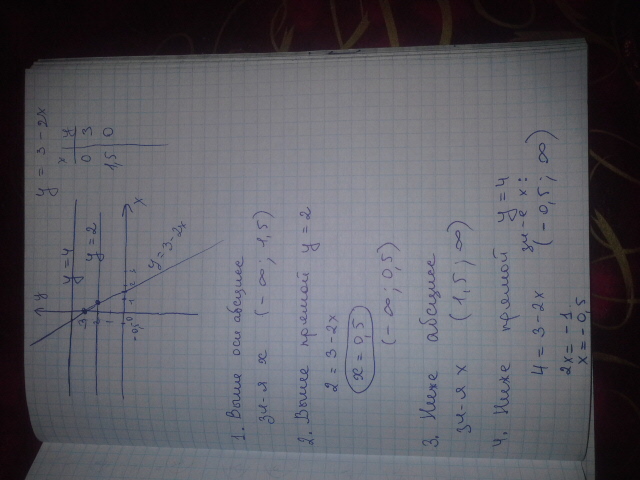 y = 3 - 2x
x y
0 3
1,5 0
y
y = 4
y = 2
3
2
1
-0,5 0 1 2 3
x
y = 3 - 2x
1. Выше оси абсцисс
зн-я x (-∞; 1,5)
2. Выше прямой y = 2
2 = 3 - 2x
x = 0,5
(-∞; 0,5)
3. Ниже абсцисс
зн-я x (1,5; ∞)
4. Ниже прямой y = 4
4 = 3 - 2x зн-е x:
2x = -1 (-0,5; ∞)
x = -0,5